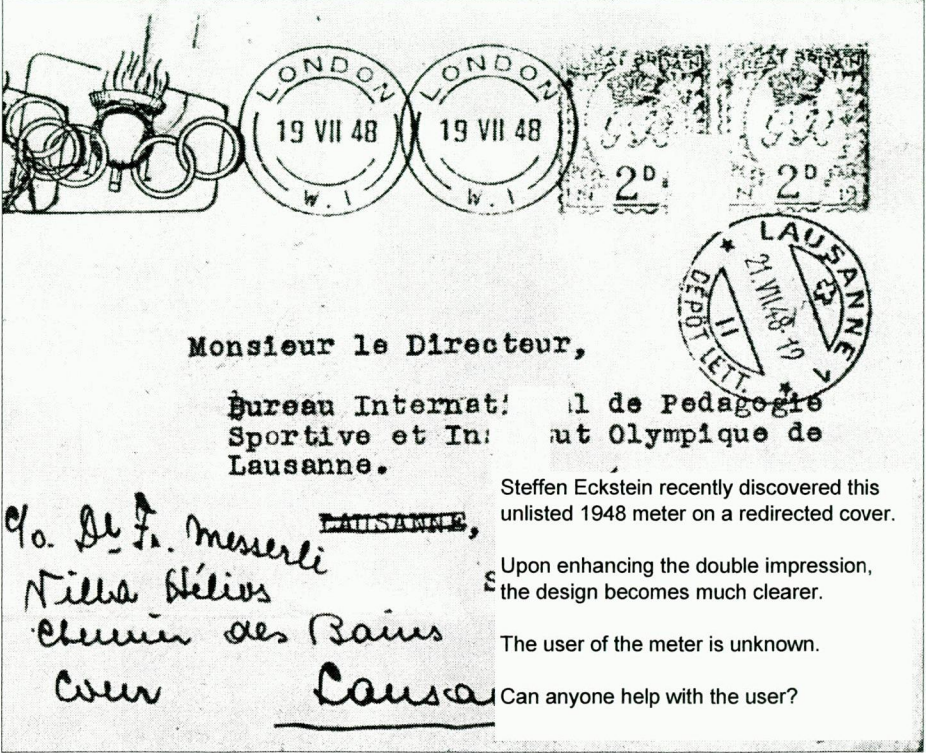 LONDON
19 VII 48
W.1
LONDON
19 VII 48
W.1
GREAT BRITAIN
2D
GREAT BRITAIN
2D
LAUSANNE 1
21.VII.48-19
11
DÉPÔT LETT.
Monsieur le Directeur,
Bureau Internat l de Pedagogie
Sportive et In ut Olympique de
Lausanne.
LAUSANNE,
c/o. Dr Fr. Messerli
Villa Hélios
Chemin des Bains
Cour Lausa
Steffen Eckstein recently discovered this
unlisted 1948 meter on a redirected cover.
Upon enhancing the double impression,
the design becomes much clearer.
The user of the meter is unknown.
Can anyone help with the user?